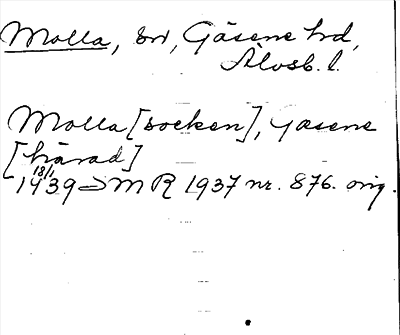 Molla, sn, Gäsene hd,
Älvsb. l.
Molla [socken], Gäsene
[härad]
18/1
1939 MR 1937 nr. 876. orig.